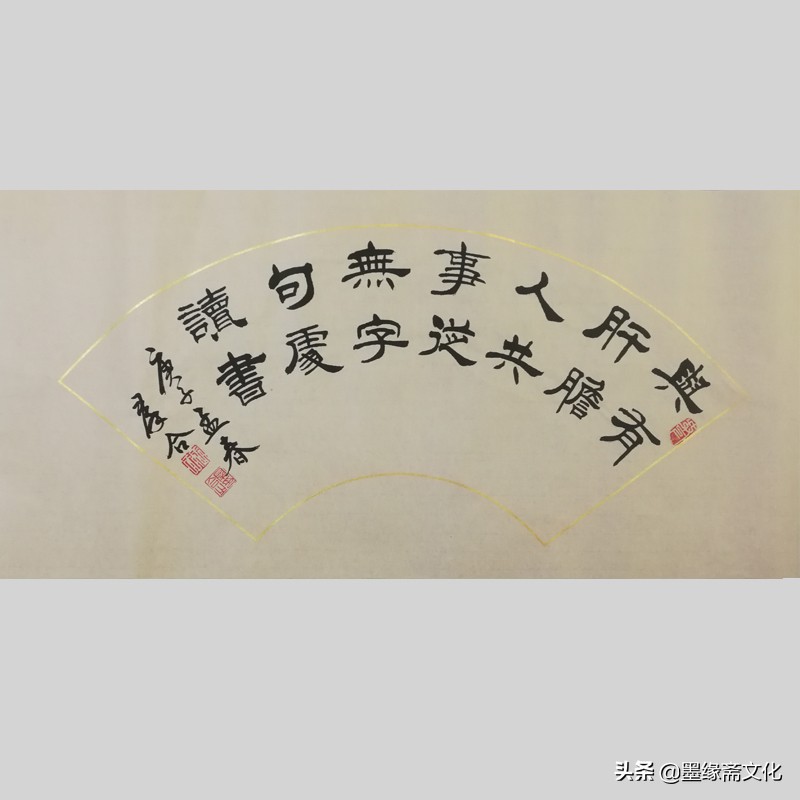 與有
肝膽
人共
事從
無字
句處
讀書
庚子孟春
合
头条 @墨缘斋文化